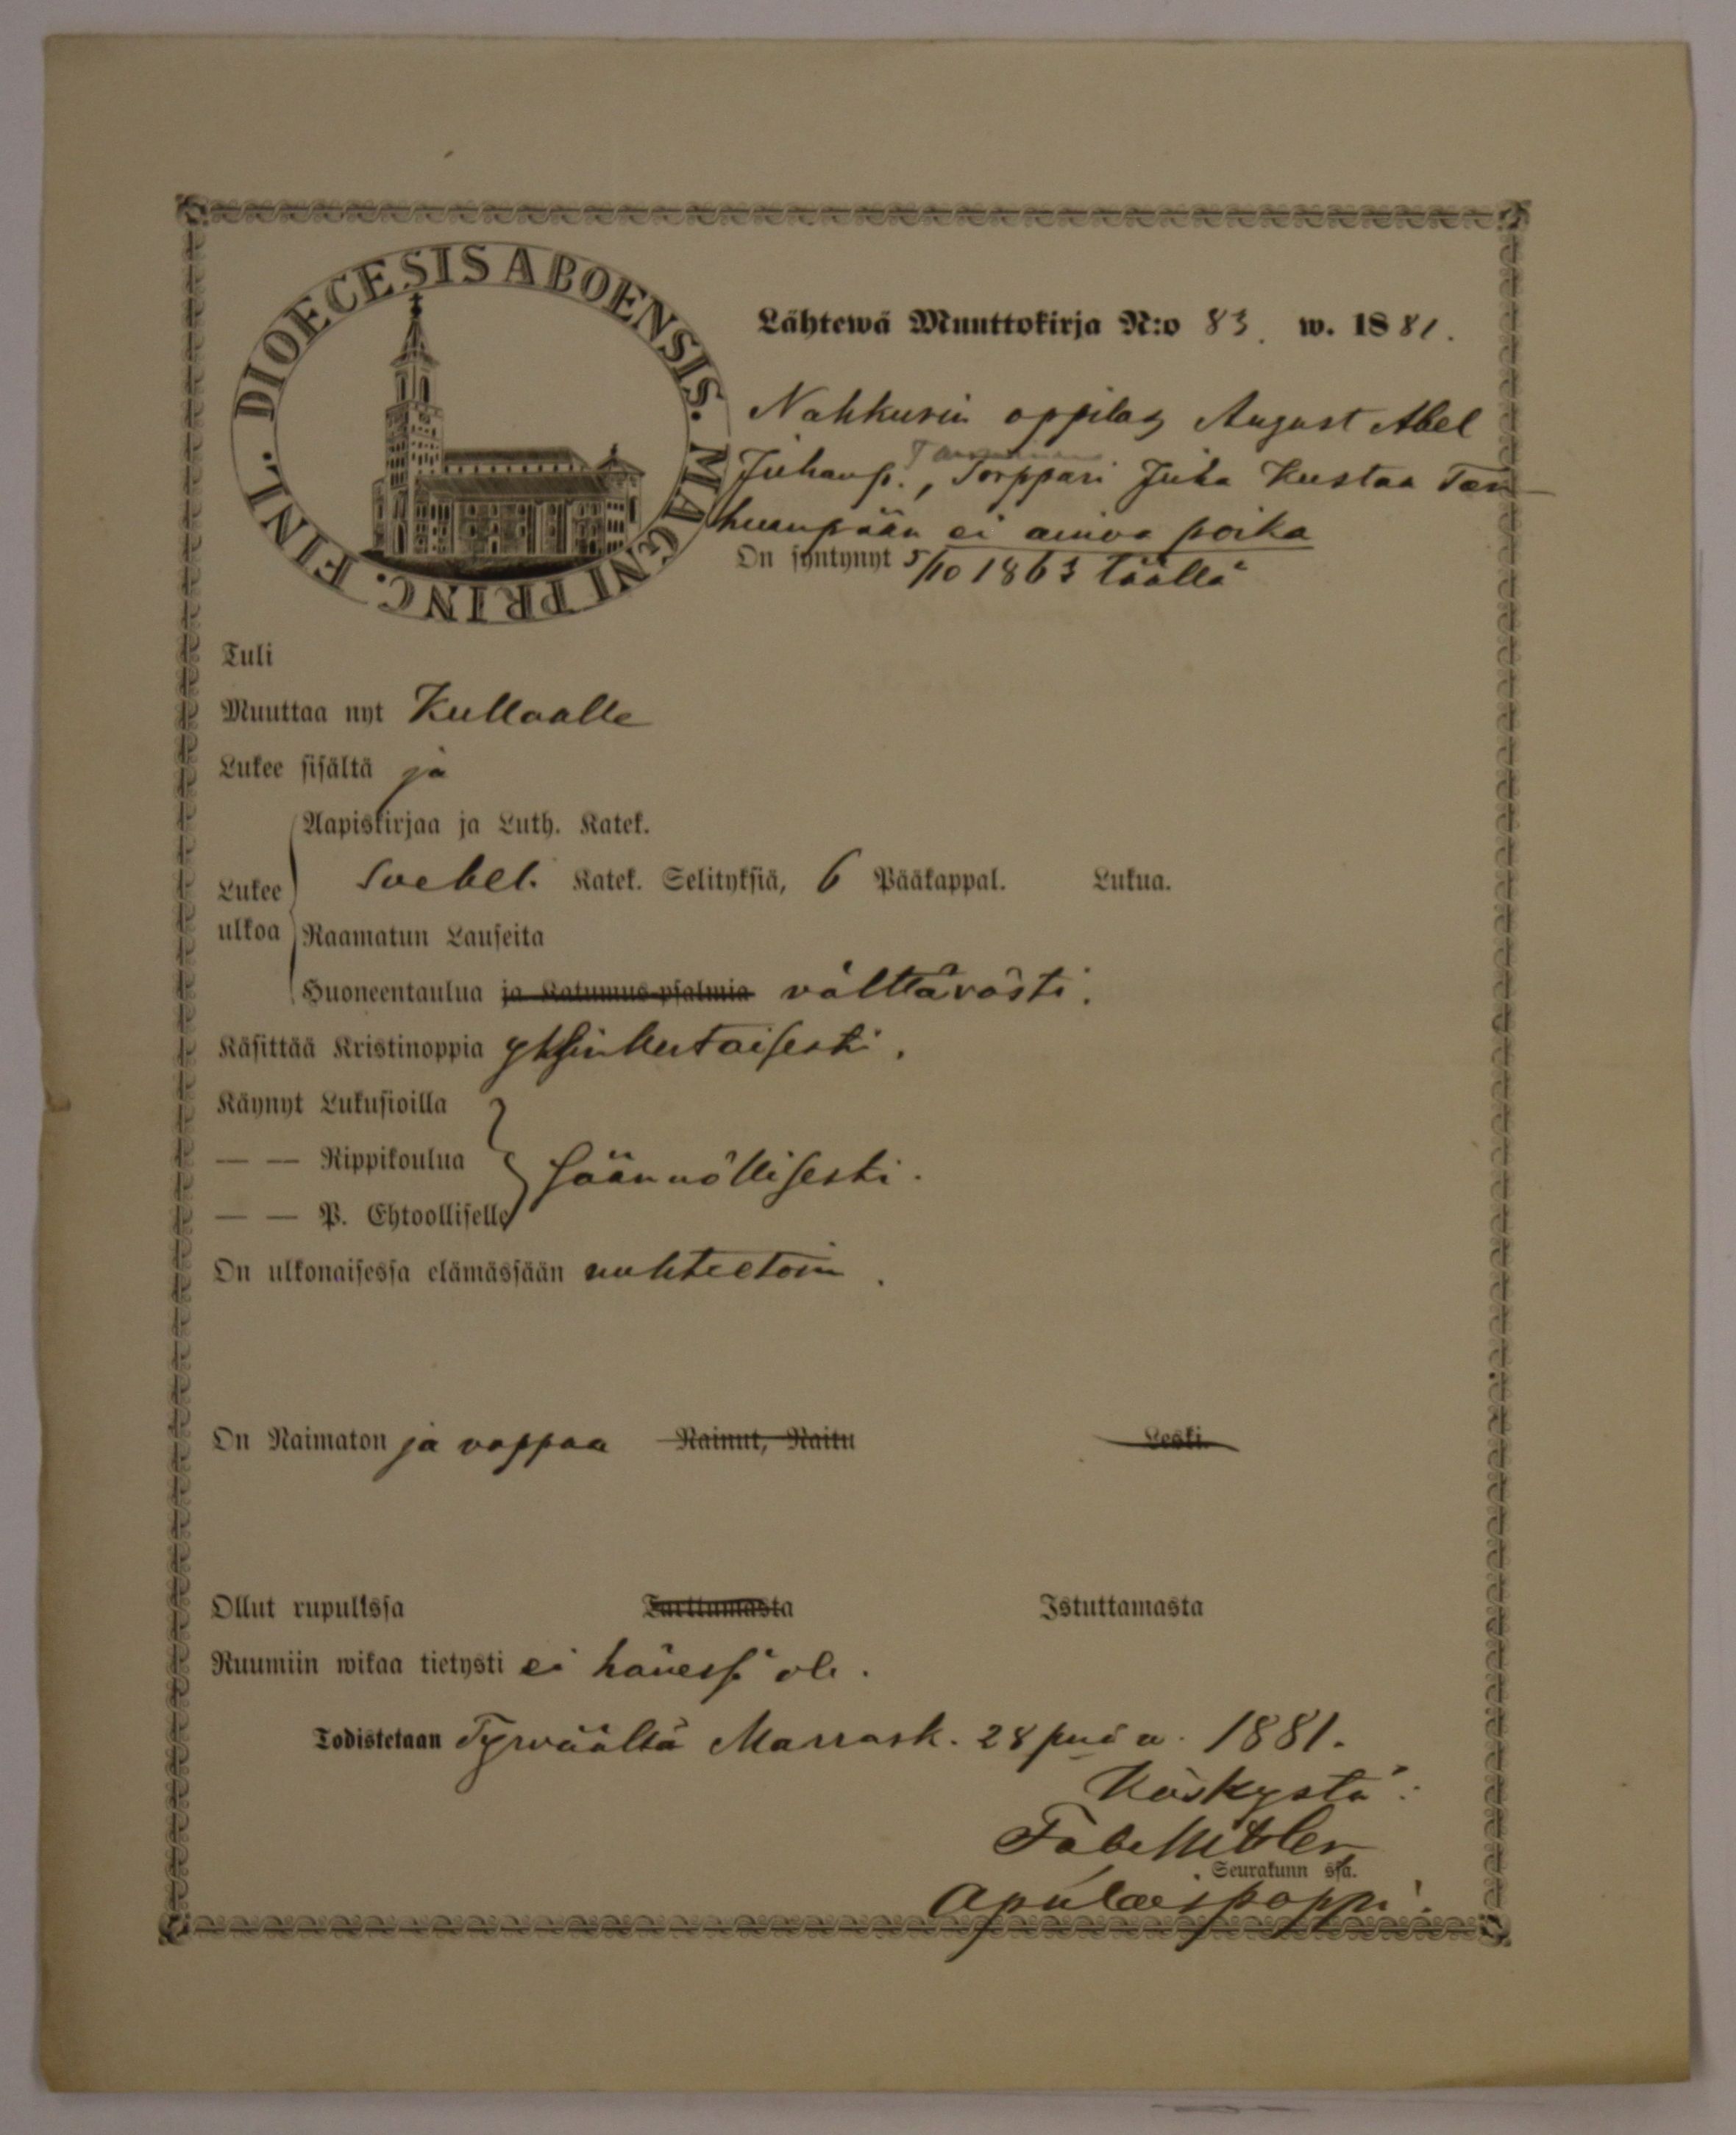 DIOECESIS ABOENSIS. MAGNI PRINC. FINL.
Lähtewä Muuttokirja N:o 83. w. 1881.
Nahkurin oppilas August Abel
Juhanp., Torppari Juha Kustaa Tan-
huanpään ei ainoa poika
On syntynyt 5/10 1863 täällä
Tuli
Muuttaa nyt Kullaalle
Lukee sisältä ja
Aapiskirjaa ja Luth. Katek.
Lukee ulkoa
Svebel. Katek. Selityksiä, 6 Pääkappal. Lukua.
Raamatun Lauseita
Huoneentaulua ja Katumus-psalmia välttävästi.
Käsittää Kristinoppia yksinkertaisesti.
Käynyt Lukusioilla
— — Rippikoulua säännöllisesti.
— — P. Ehtoolliselle
On ulkonaisessa elämässään nuhteetoin.
On Naimaton ja vappaa Nainut, Naitu Leski.
Ollut rupulissa Tarttumasta Istuttamasta
Ruumiin wikaa tietysti ei hänessä ole.
Todistetaan Tyrväältä Marrask. 28 pnä a. 1881.
Käskystä:
Seurakunn ssa.
Apulaispappi.